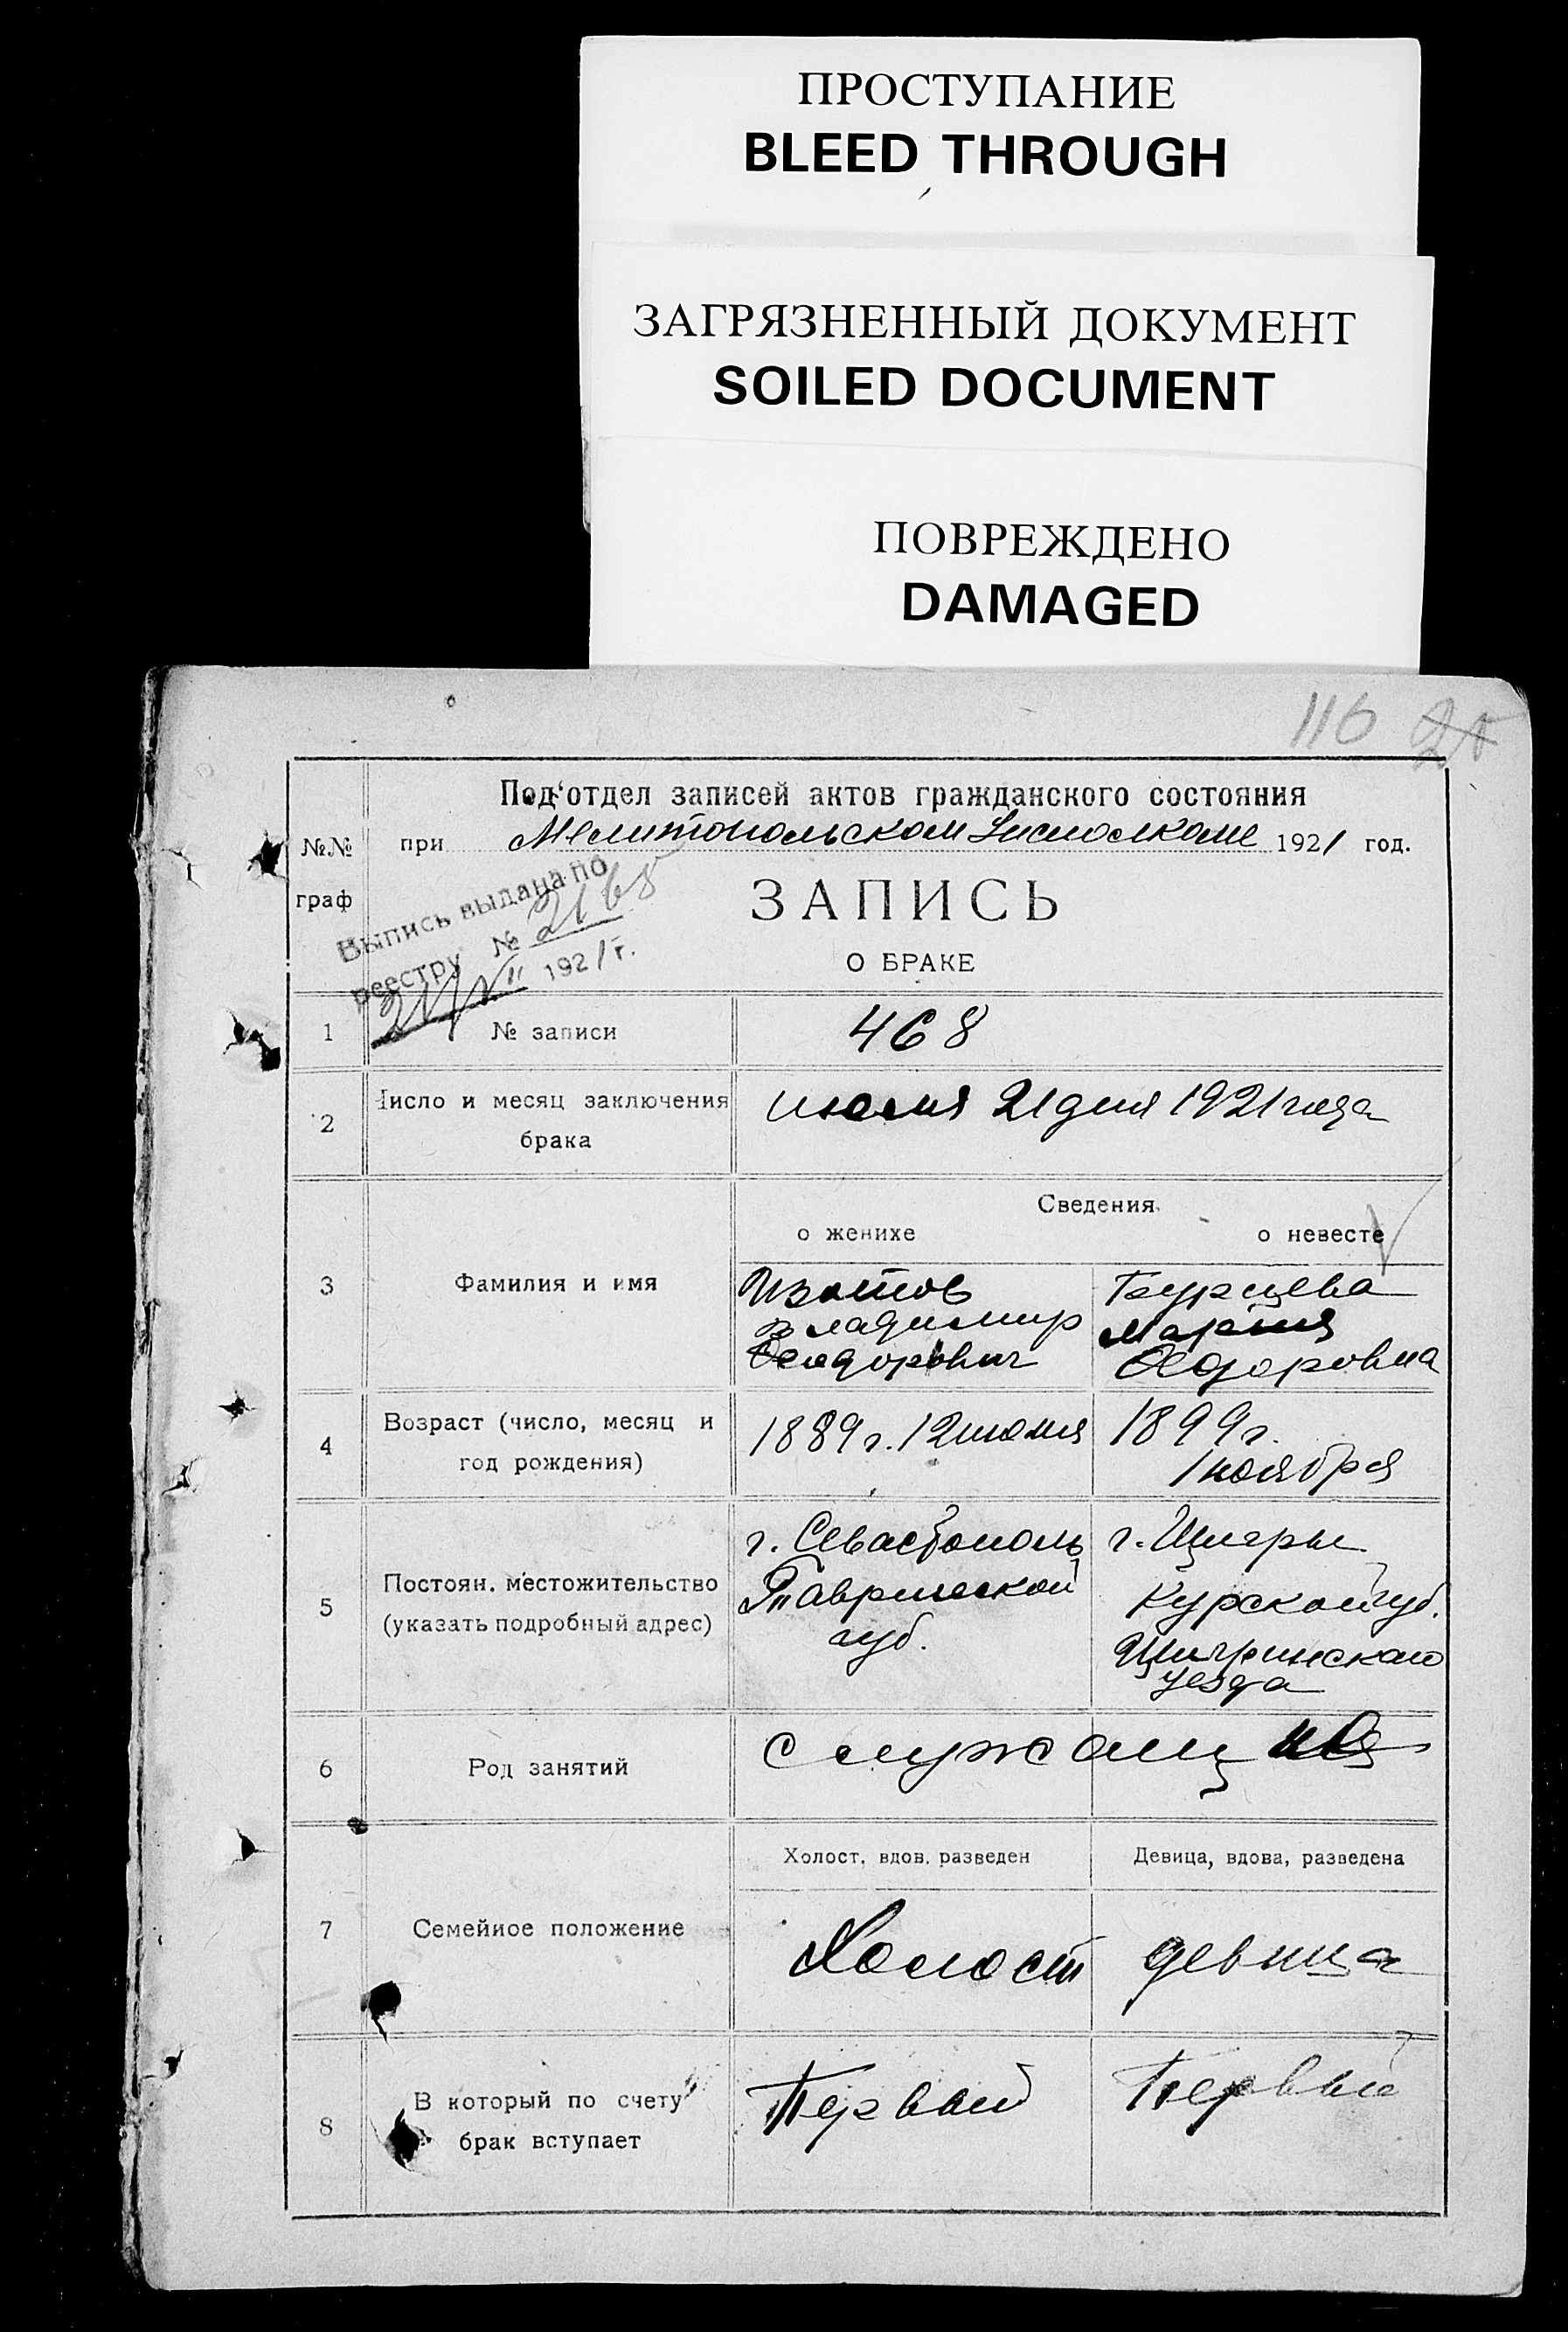 ПРОСТУПАНИЕ
BLEED THROUGH
ЗАГРЯЗНЕННЫЙ ДОКУМЕНТ
SOILED DOCUMENT
ПОВРЕЖДЕНО
DAMAGED
116
Под'отдел записей актов гражданского состояния
№№ граф
при Мелитопольском 1921 год.
Выпись выдана по
реестру № 2168
1921 г.
ЗАПИСЬ
О БРАКЕ
1 № записи 468
2 Число и месяц заключения
брака
июля 21 дня 1921 года
Сведения
о женихе о невесте
3 Фамилия и имя
Изотов Бурцева
Владимир Мария
Феодорович Феодоровна
4 Возраст (число, месяц и
год рождения)
1889 г. 12 1899 г.
1 ноября
5 Постоян. местожительство
(указать подробный адрес)
г. Севастополь г. Щигры
Таврической Курской губ.
губ. Щигринскаго
уезда
6 Род занятий служащия
Холост, вдов, разведен Девица, вдова, разведена
7 Семейное положение Холост девица
8 В который по счету
брак вступает
Первый Первый